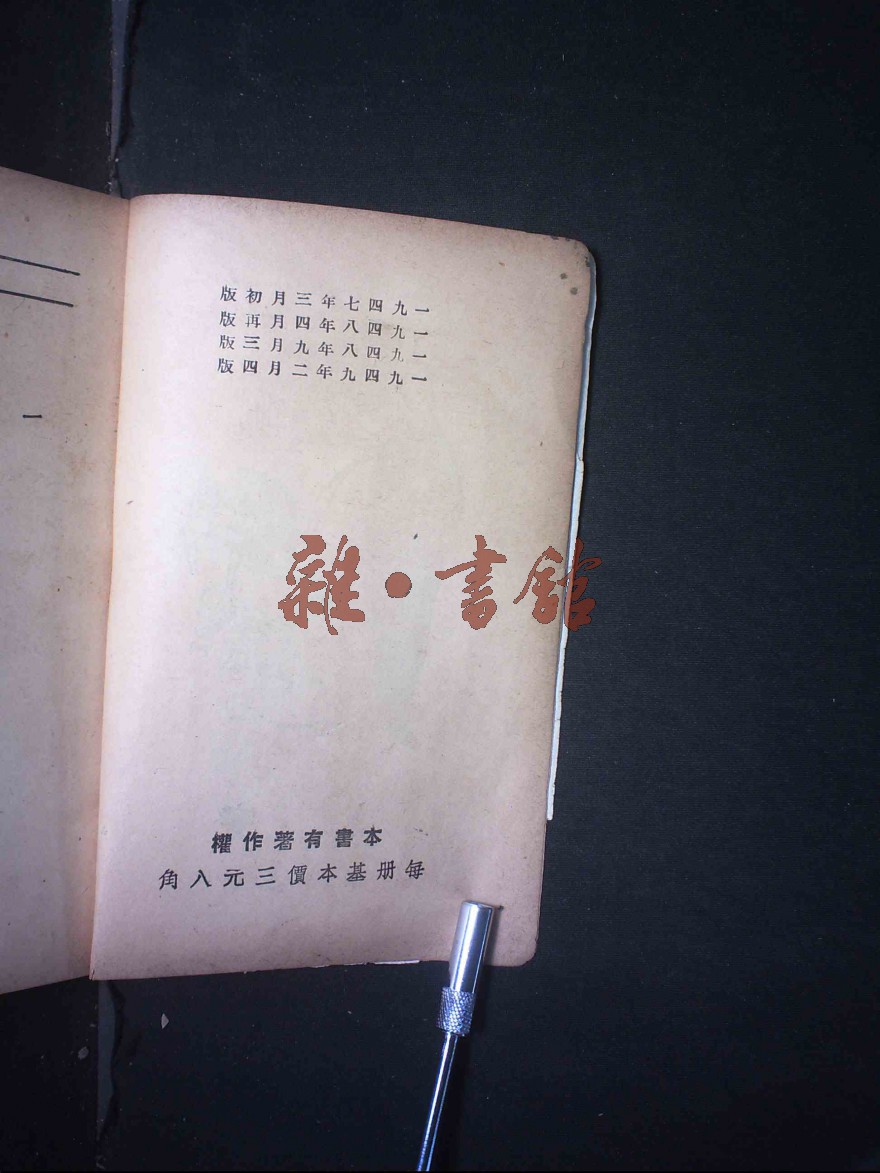 一九四七年三月初版
一九四八年四月再版
一九四八年九月三版
一九四九年二月四版
雜•書館
本書有著作權
每册基本價三元八角
一